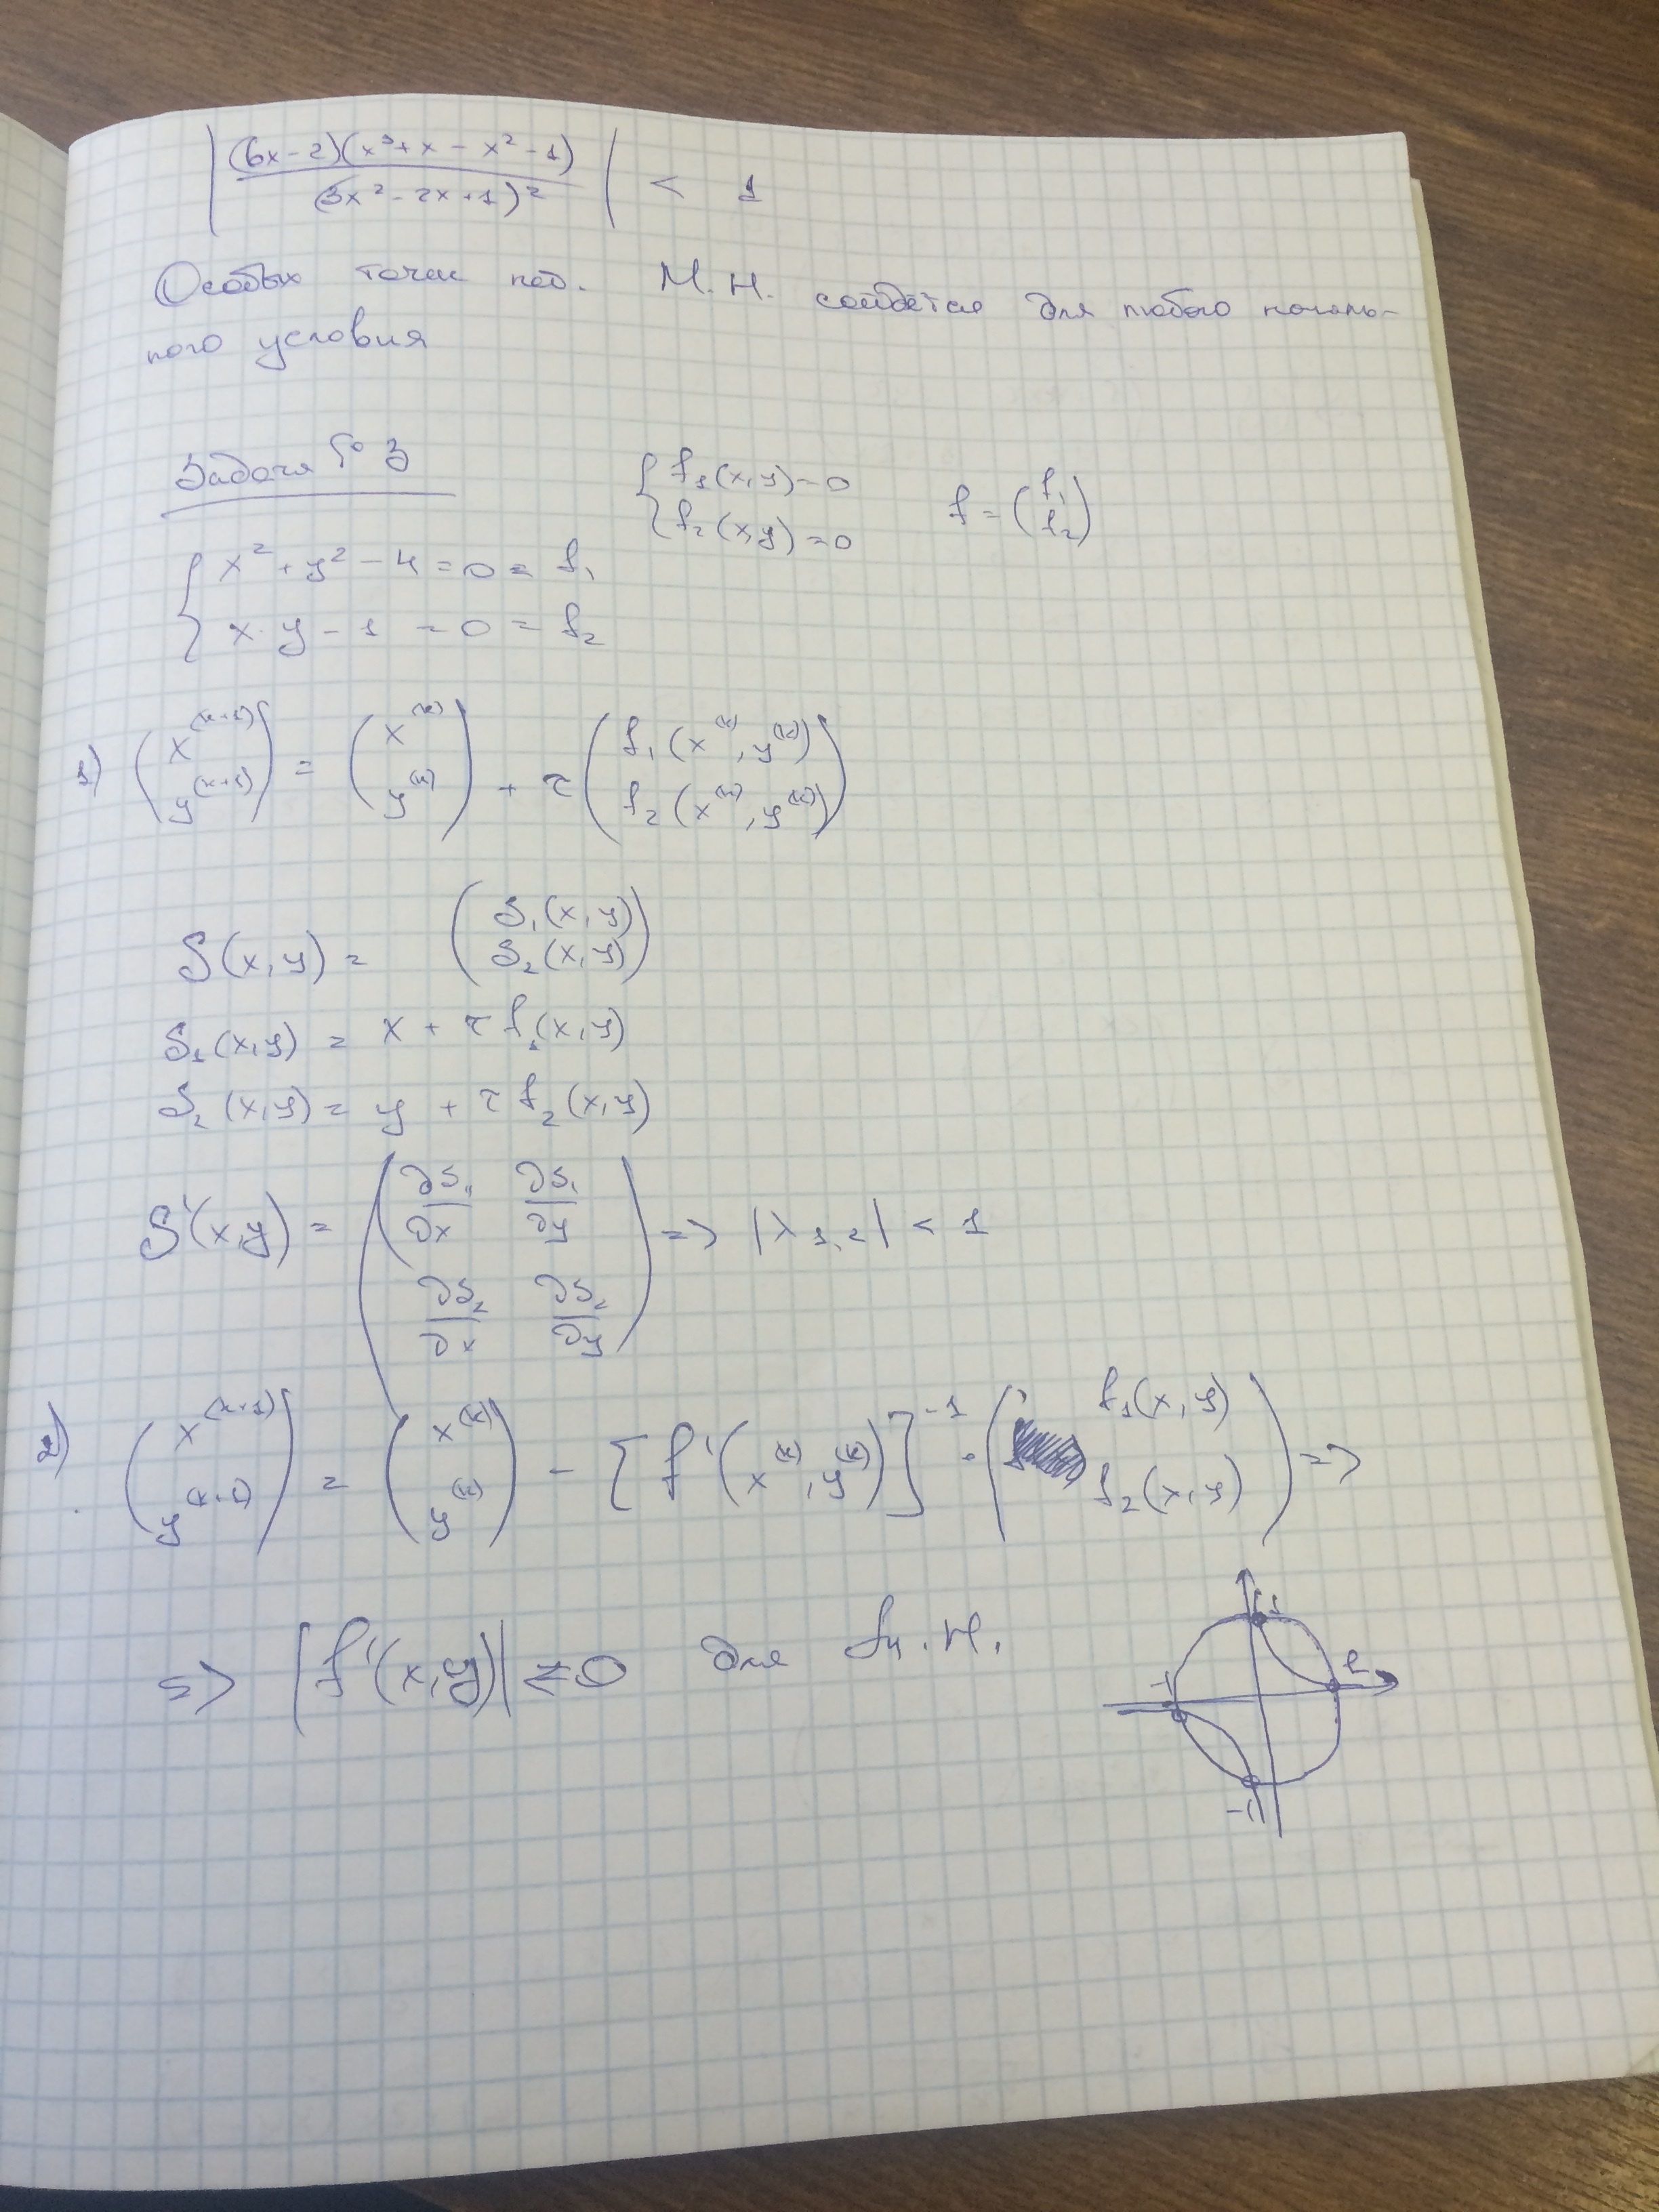 |((6x-2)(x³+x-x²-1))/((3x²-2x+1)²)| < 1
Особых точек М.Н. сойдётся для любого началь-
ного условия
Задача № 3
{ f₁(x,y)=0
{ f₂(x,y)=0
f = (f₁ f₂)
{ x²+y²-4=0=f₁
{ x·y-1=0=f₂
1) (x⁽ᵏ⁺¹⁾ y⁽ᵏ⁺¹⁾) = (x⁽ᵏ⁾ y⁽ᵏ⁾) + τ (f₁(x⁽ᵏ⁾,y⁽ᵏ⁾) f₂(x⁽ᵏ⁾,y⁽ᵏ⁾))
S(x,y) = (S₁(x,y) S₂(x,y))
S₁(x,y) = x + τ f₁(x,y)
S₂(x,y) = y + τ f₂(x,y)
S'(x,y) = (∂S₁/∂x ∂S₁/∂y ∂S₂/∂x ∂S₂/∂y) => |λ₁,₂| < 1
2) (x⁽ᵏ⁺¹⁾ y⁽ᵏ⁺¹⁾) = (x⁽ᵏ⁾ y⁽ᵏ⁾) - [f'(x⁽ᵏ⁾,y⁽ᵏ⁾)]⁻¹ · (f₁(x,y) f₂(x,y)) =>
=> |f'(x,y)| ≠ 0 для
1
-1
-1